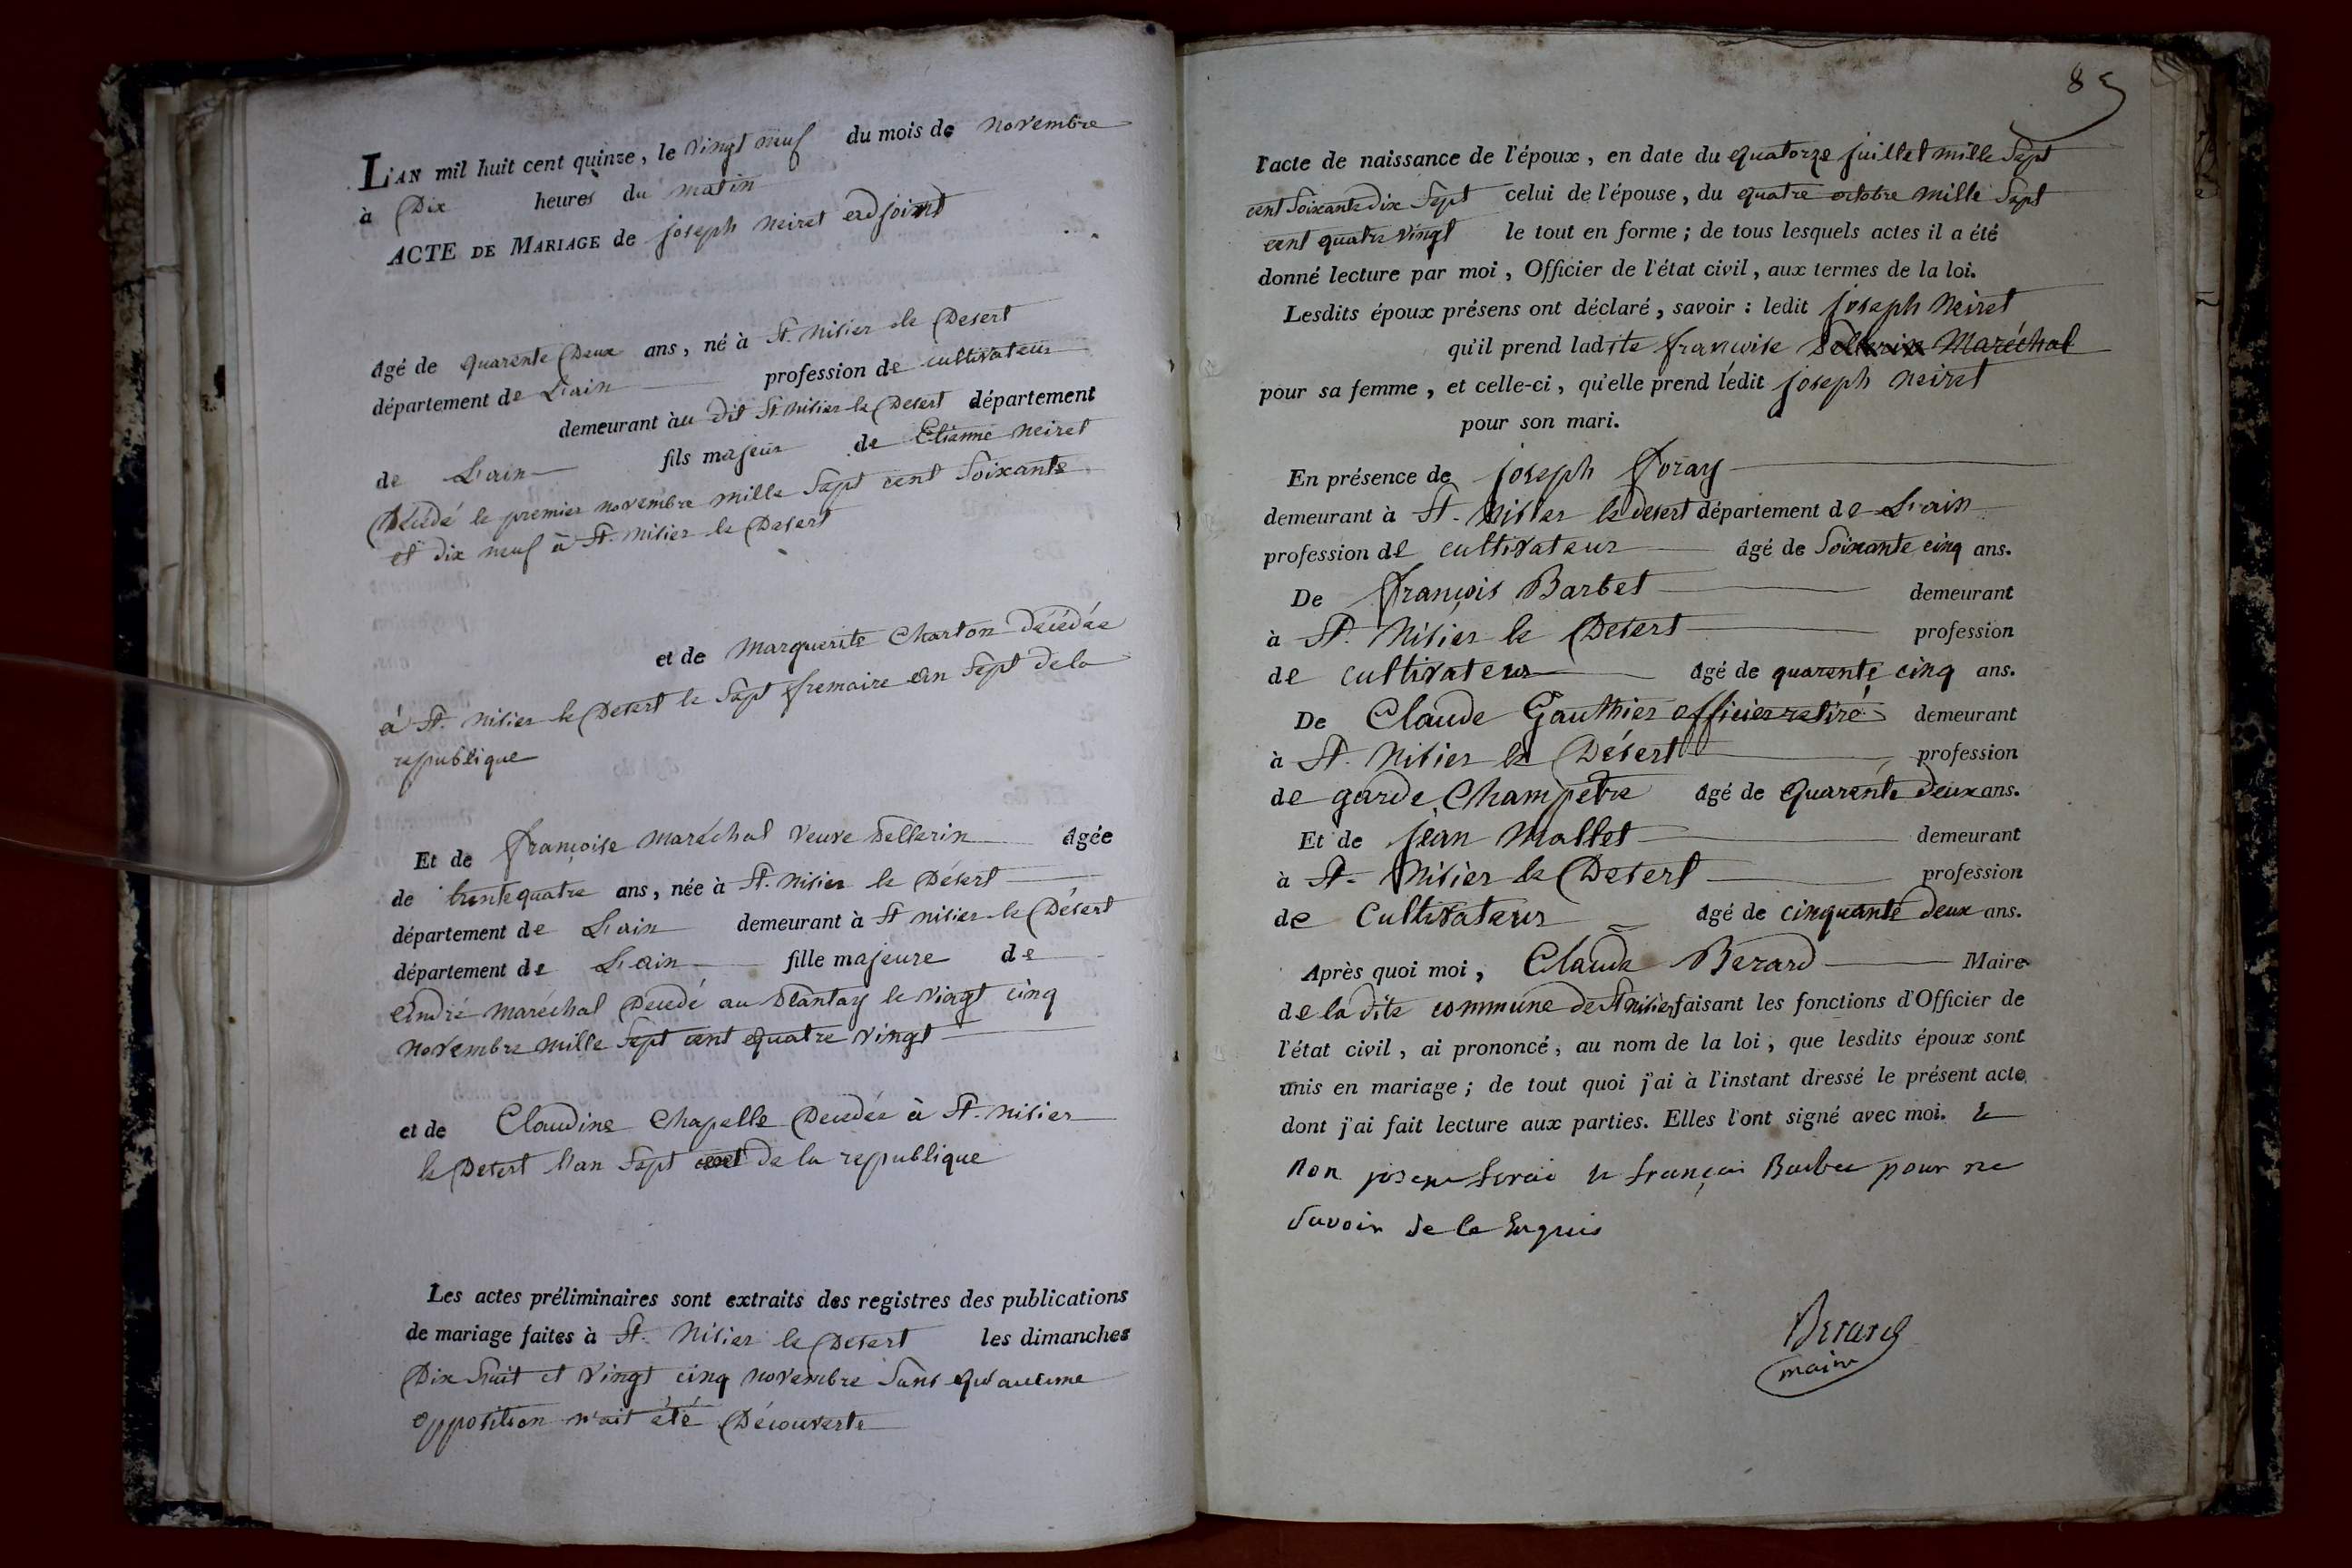 L'AN mil huit cent quinze, le vingt neuf du mois de novembre
à Dix heures du matin
ACTE DE MARIAGE de joseph Neiret adjoint
âgé de quarente Deux ans, né à St. Nisier le Desert
département de L'ain profession de cultivateur
demeurant àu dit St. Nisier le Desert département
de L'ain fils majeur de Etienne Neiret
Décédé le premier novembre mille Sept cent Soixante
et dix neuf à St. Nisier le Desert
et de Marguerite Charton décédée
à St. Nisier le Desert le Sept fremaire an Sept de la
republique
Et de françoise maréchal veuve Pellerin âgée
de trentequatre ans, née à St. Nisier le Désert
département de L'ain demeurant à St nisier le Désert
département de L'ain fille majeure de
André maréchal Decedé au Plantay le vingt cinq
novembre mille Sept cent quatre vingt
et de Claudine Chapelle Decedée à St. Nisier
le Desert l'an Sept de la republique
Les actes préliminaires sont extraits des registres des publications
de mariage faites à St. Nisier le Desert les dimanches
Dix huit et vingt cinq novembre Sans qu'aucune
opposition n'ait été Découverte
85
l'acte de naissance de l'époux, en date du quatorze juillet mille Sept
cent Soixante Dix Sept celui de l'épouse, du quatre octobre mille Sept
cent quatre vingt le tout en forme ; de tous lesquels actes il a été
donné lecture par moi, Officier de l'état civil, aux termes de la loi.
Lesdits époux présens ont déclaré, savoir : ledit joseph Neiret
qu'il prend ladite françoise Pellerin Maréchal
pour sa femme, et celle-ci, qu'elle prend ledit joseph Neiret
pour son mari.
En présence de joseph foray
demeurant à St. Nisier le desert département de L'ain
profession de cultivateur âgé de Soixante cinq ans.
De françois Barbet demeurant
à St. Nisier le Desert profession
de cultivateur âgé de quarente cinq ans.
De Claude Gauthier officier retiré demeurant
à St. Nisier le Désert profession
de garde Champetre âgé de quarente deux ans.
Et de jean Mallet demeurant
à St. Nisier le Desert profession
de Cultivateur âgé de cinquante deux ans.
Après quoi moi, Claude Berard Maire
de la dite commune de St nisier faisant les fonctions d'Officier de
l'état civil, ai prononcé, au nom de la loi, que lesdits époux sont
unis en mariage ; de tout quoi j'ai à l'instant dressé le présent acte
dont j'ai fait lecture aux parties. Elles l'ont signé avec moi. &
non joseph forai & françai Barbee pour ne
Savoir de ce Enquis
Berard
maire